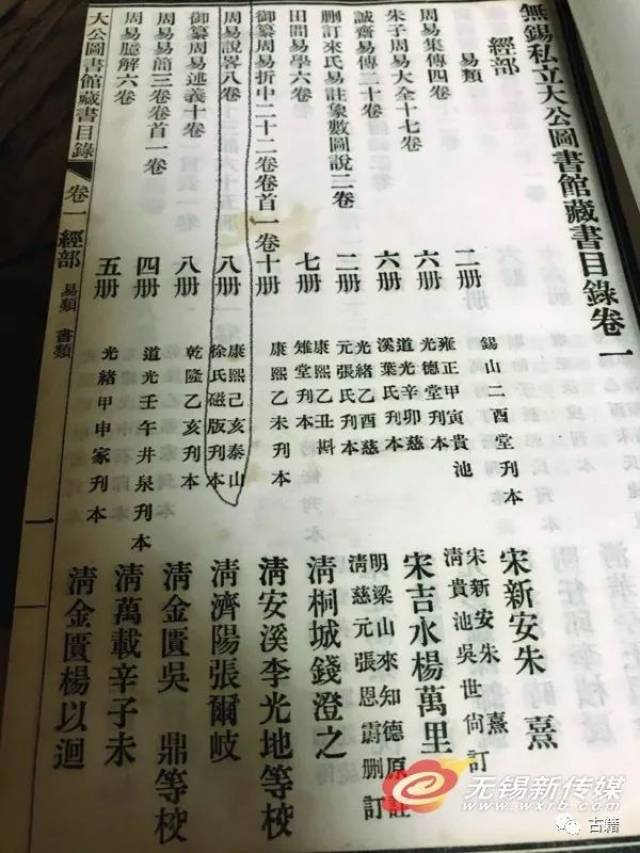 無錫私立大公圖書館藏書目錄卷一
經部
易類
周易集傳四卷 二册 錫山二酉堂刋本 宋新安朱熹
朱子周易大全十七卷 六册 雍正甲寅貴池光德堂刋本 宋新安朱熹 清貴池吳世尚訂
誠齋易傳二十卷 六册 道光辛卯慈溪葉氏刋本 宋吉水楊萬里
刪訂來氏易註象數圖說二卷 二册 光緒乙酉慈元張氏刋本 明梁山來知德原註 清慈元張恩霨刪訂
田間易學六卷 七册 康熙乙丑斟雉堂刋本 清桐城錢澄之
御纂周易折中二十二卷卷首一卷 十册 康熙乙未刋本 清安溪李光地等校
周易說畧八卷 八册 康熙己亥泰山徐氏磁版刋本 清濟陽張爾岐
御纂周易述義十卷 八册 乾隆乙亥刋本 清金匱吳鼎等校
周易易簡三卷卷首一卷 四册 道光壬午井泉刋本 清萬載辛子未
周易臆解六卷 五册 光緒甲申家刋本 清金匱楊以迴
大公圖書館藏書目錄 卷一 經部 易類 書類 一
无锡新传媒
www.wxrb.com
古籍